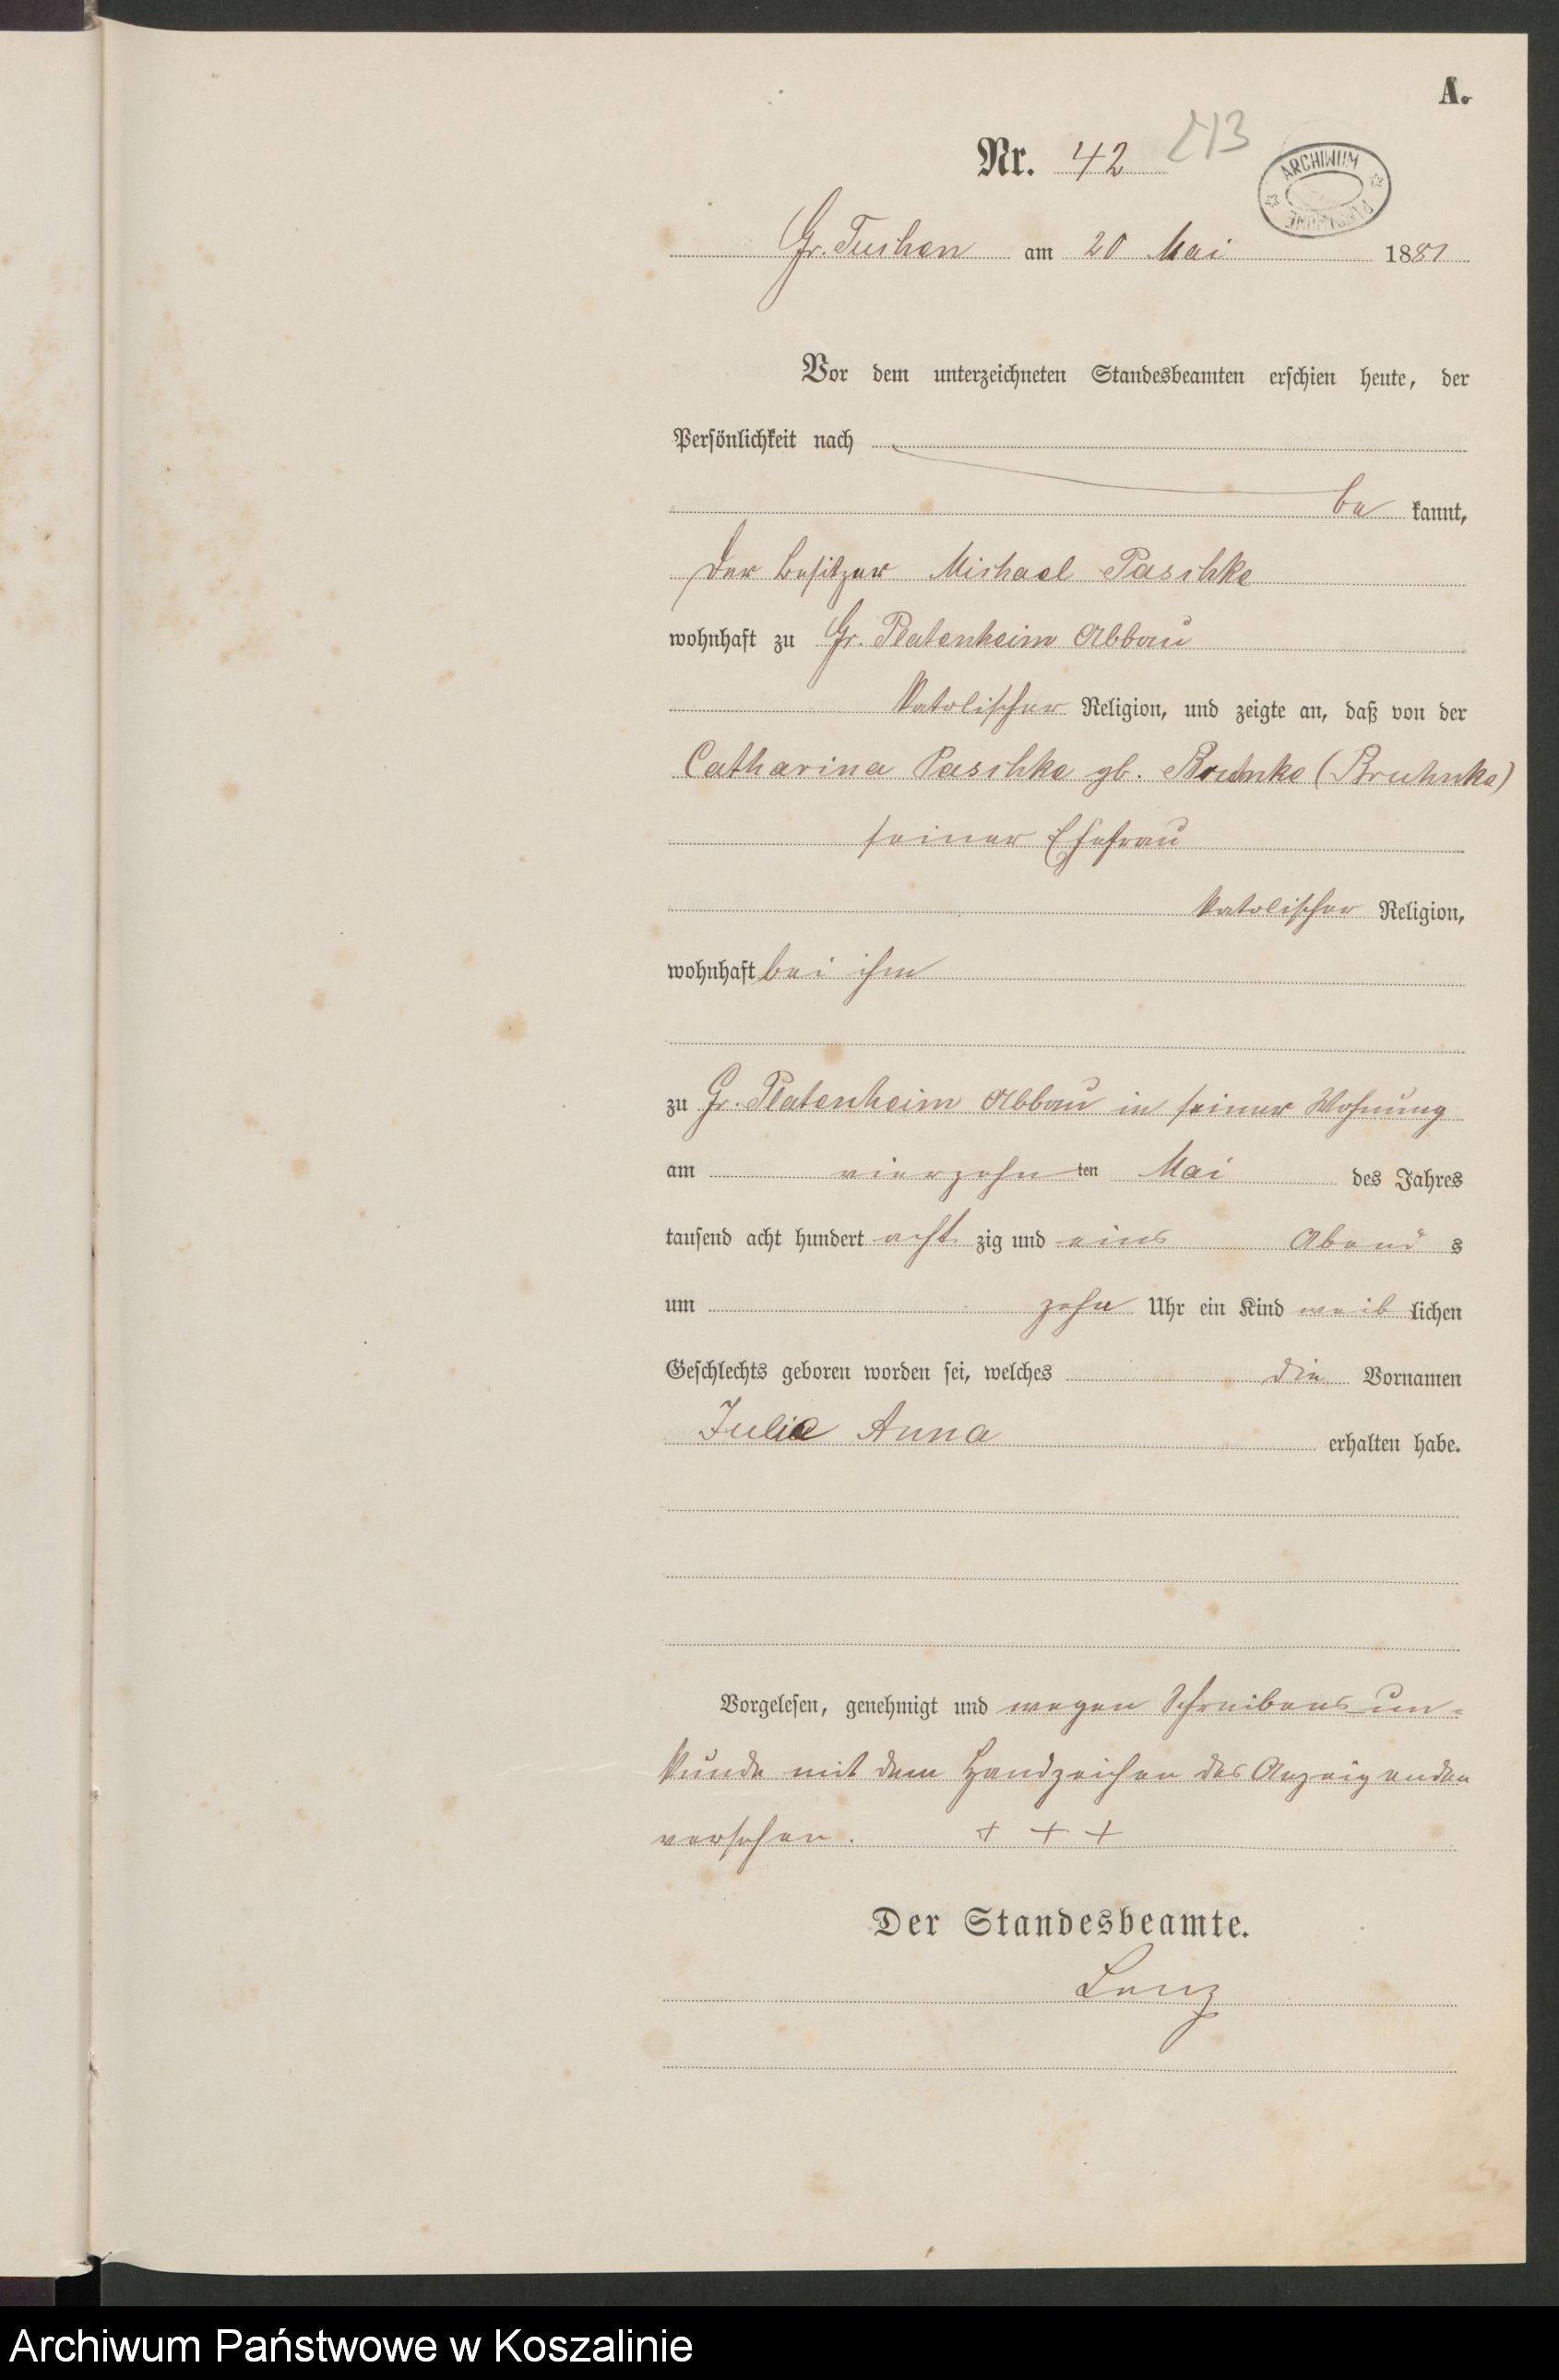 A.
Nr. 42 213
ARCHIWUM PAŃSTWOWE
Gr. Tuchen am 20 Mai 1881
Vor dem unterzeichneten Standesbeamten erschien heute, der
Persönlichkeit nach
be kannt,
der Besitzer Michael Paschke
wohnhaft zu Gr. Platenheim Abbau
katolischer Religion, und zeigte an, daß von der
Catharina Paschke gb. Bruhnke (Bruhnke)
seiner Ehefrau
katolischer Religion,
wohnhaft bei ihm
zu Gr. Platenheim Abbau in seiner Wohnung
am vierzehn ten Mai des Jahres
tausend acht hundert acht zig und eins Abend s
um zehn Uhr ein Kind weib lichen
Geschlechts geboren worden sei, welches die Vornamen
Julia Anna erhalten habe.
Vorgelesen, genehmigt und wegen Schreibens un-
kunde mit dem Handzeichen des Anzeigenden
versehen. + + +
Der Standesbeamte.
Lenz
Archiwum Państwowe w Koszalinie